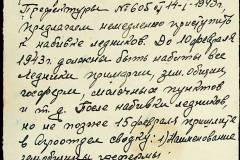 Префектуры № 605 от 14-I-1943г.
предлагаем немедленно приступить
к набивке ледников. До 10 февраля
1943г. должны быть набиты все
ледники примарии, зем. общин,
госферм, молочных пунктов
и т.д. После набивки ледников,
но не позже 15 февраля пришлите
в агроотдел сводку: 1) Наименование
госфермы.